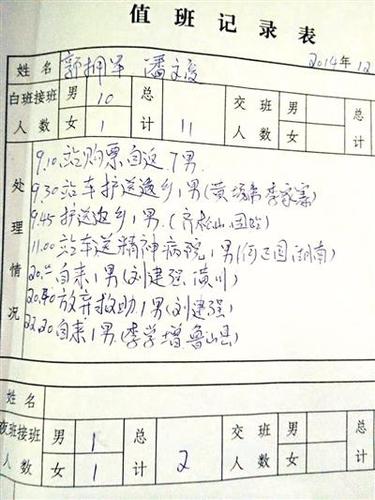 值班记录表
2014年12
姓名 郭拥军 潘文俊
白班接班人数 男 10 女 1 总计 11 交班人数 男 女
处理情况
9.10 站购票自返 7男
9.30 站车护送返乡1男(黄 李家寨)
9.45 护送返乡1男.(齐松山.固始)
11.00 站车送精神病院1男(何正国.湖南)
20.- 自来1男(刘建强.潢川)
20.40 放弃救助1男(刘建强)
22.20 自来1男.(李学增.鲁山县)
姓名
夜班接班人数 男 1 女 1 总计 2 交班人数 男 女